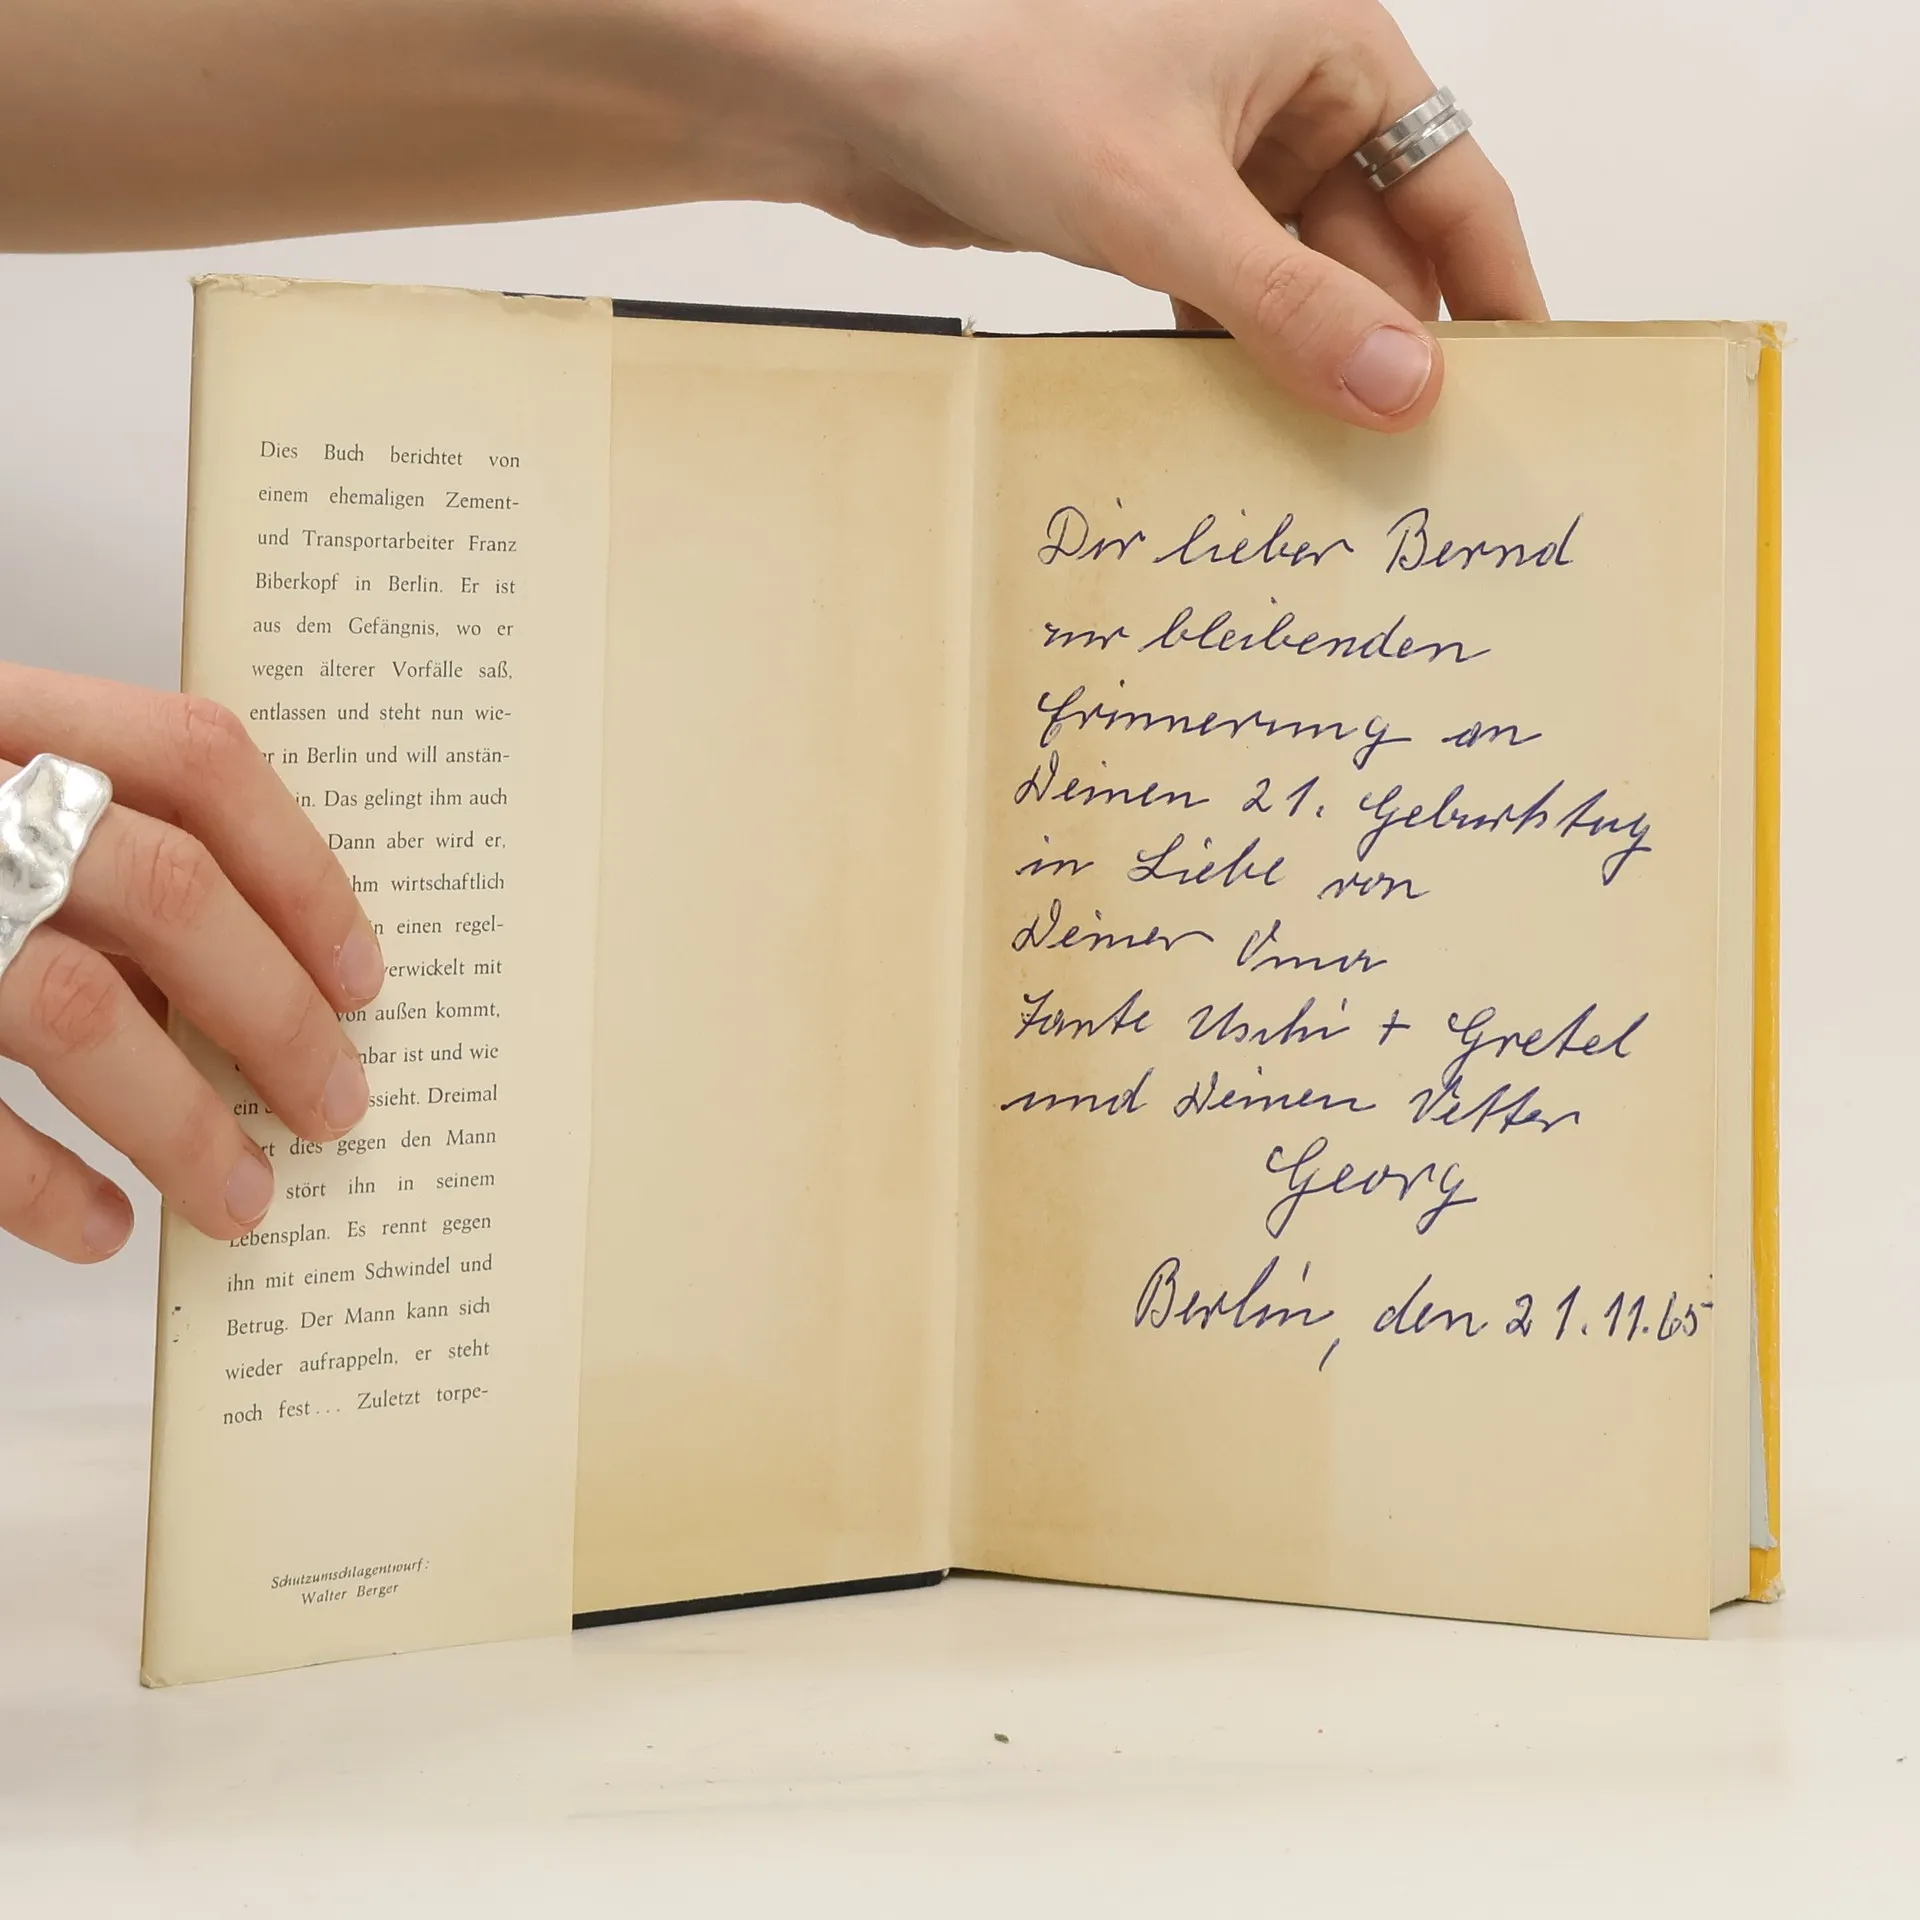 Dies Buch berichtet von
einem ehemaligen Zement-
und Transportarbeiter Franz
Biberkopf in Berlin. Er ist
aus dem Gefängnis, wo er
wegen älterer Vorfälle saß,
entlassen und steht nun wie-
in Berlin und will anstän-
Das gelingt ihm auch
Dann aber wird er,
wirtschaftlich
einen regel-
mit
außen kommt,
ist und wie
ein Dreimal
dies gegen den Mann
stört ihn in seinem
Lebensplan. Es rennt gegen
ihn mit einem Schwindel und
Betrug. Der Mann kann sich
wieder aufrappeln, er steht
noch fest... Zuletzt torpe-
Schutzumschlagentwurf:
Walter Berger
Dir lieber Bernd
zur bleibenden
Erinnerung an
Deinen 21. Geburtstag
in Liebe von
Deiner Oma
Tante Uschi + Gretel
und Deinen Vetter
Georg
Berlin, den 21.11.65